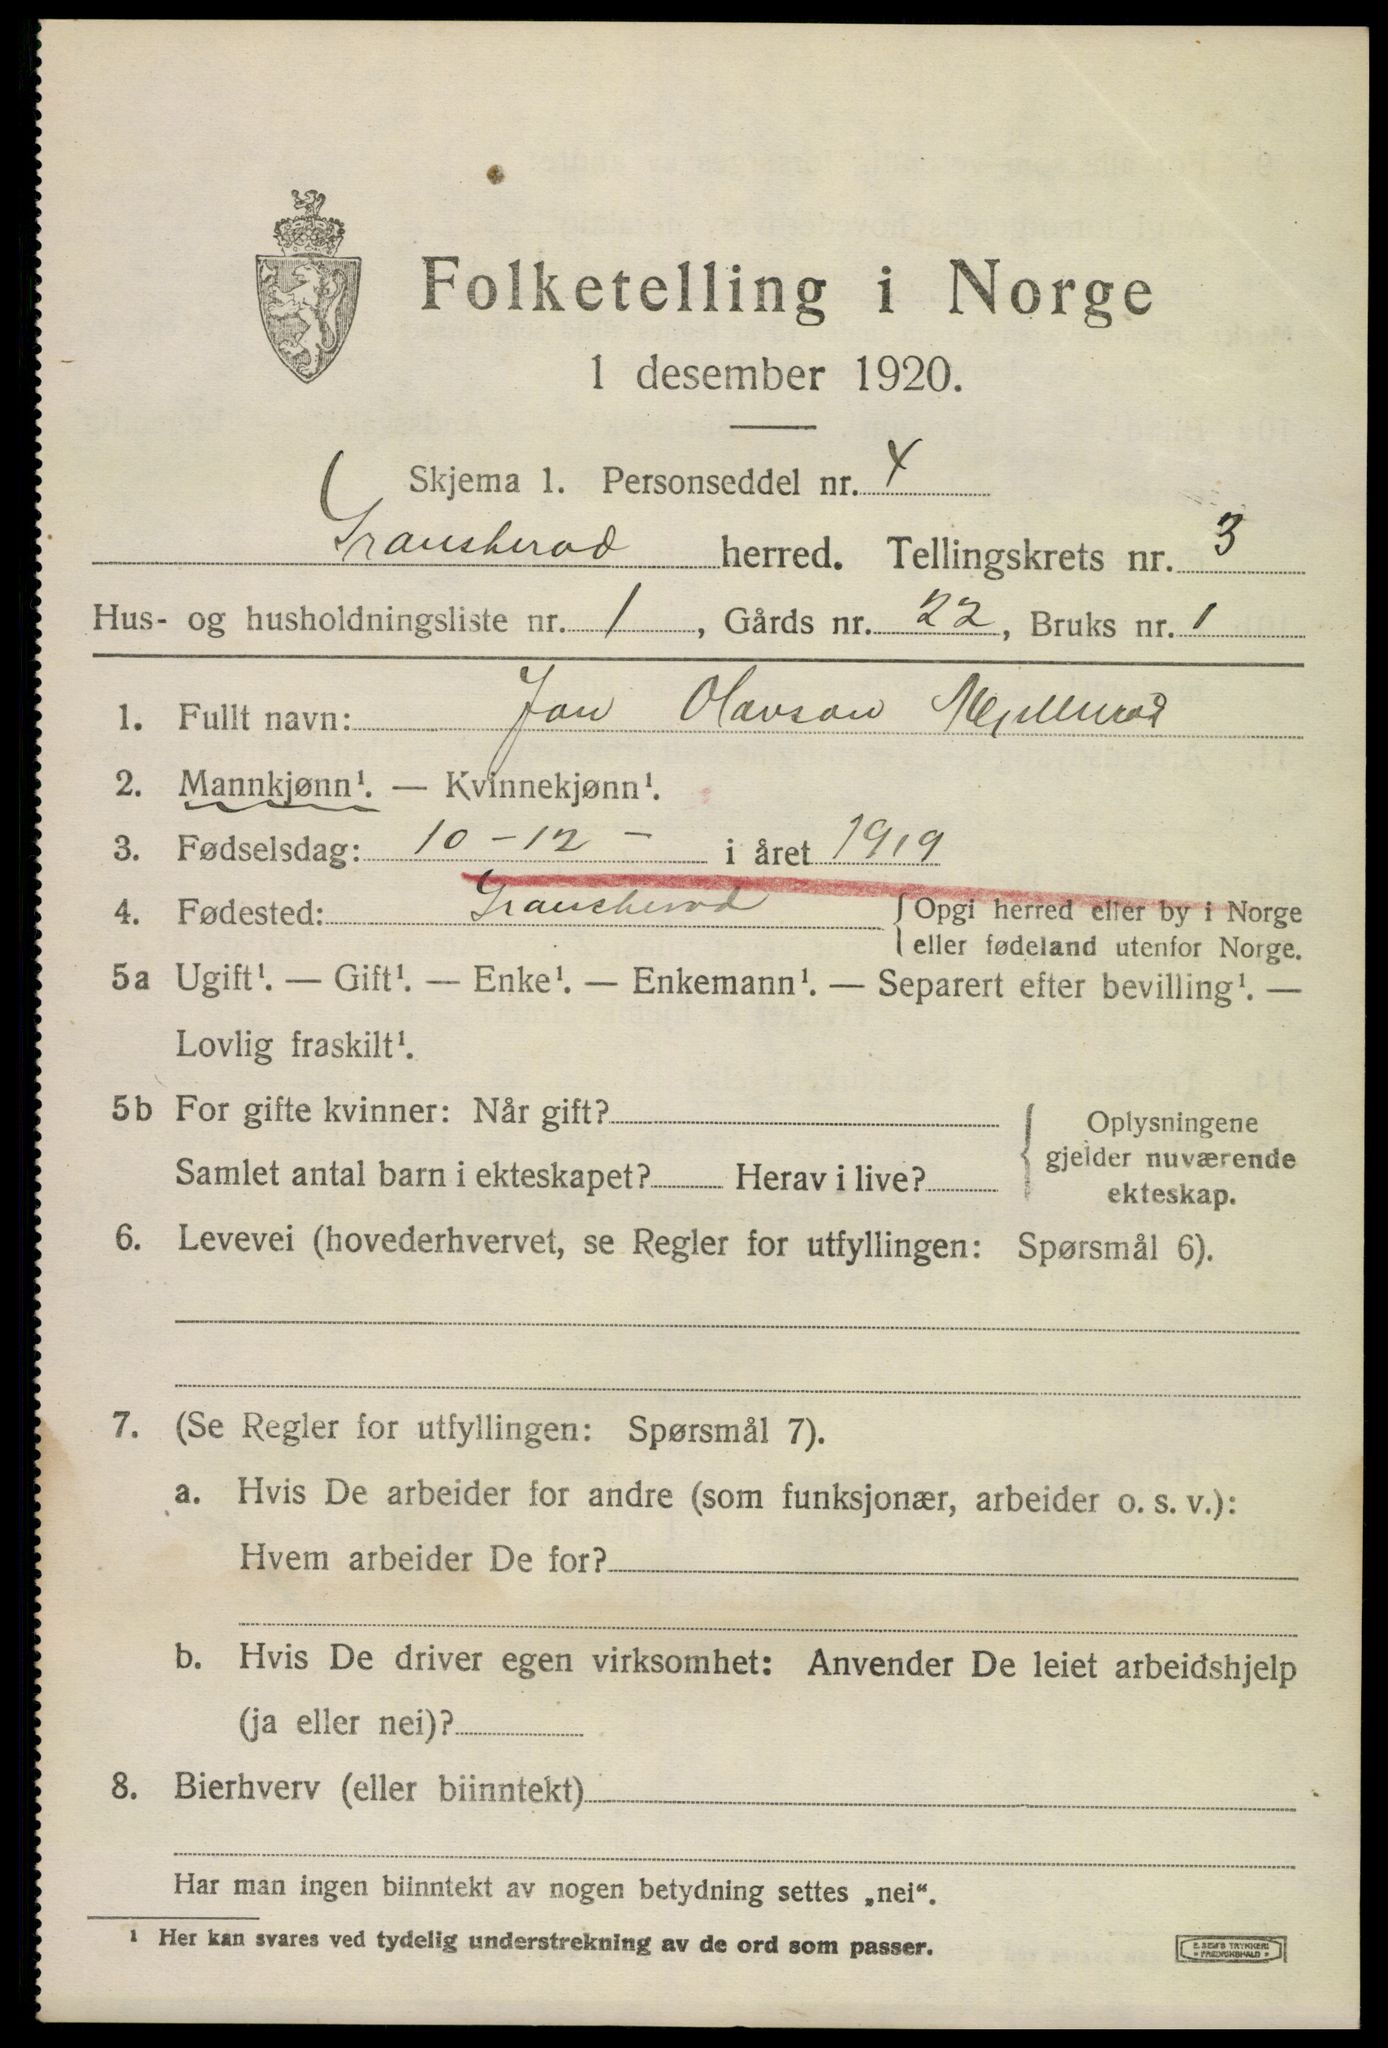 Folketelling i Norge
1 desember 1920.
Skjema 1. Personseddel nr. 4
Gransherad herred. Tellingskrets nr. 3
Hus- og husholdningsliste nr. 1, Gårds nr. 22, Bruks nr. 1
1. Fullt navn: Jon Olavson
2. Mannkjønn¹. — Kvinnekjønn¹.
3. Fødselsdag: 10-12- i året 1919
4. Fødested: Gransherad { Opgi herred eller by i Norge
eller fødeland utenfor Norge.
5a Ugift¹. — Gift¹. — Enke¹. — Enkemann¹. — Separert efter bevilling¹. —
Lovlig fraskilt¹.
5b For gifte kvinner: Når gift?
Samlet antal barn i ekteskapet? Herav i live?
{ Oplysningene
gjelder nuværende
ekteskap.
6. Levevei (hovederhvervet, se Regler for utfyllingen: Spørsmål 6).
7. (Se Regler for utfyllingen: Spørsmål 7).
a. Hvis De arbeider for andre (som funksjonær, arbeider o. s. v.):
Hvem arbeider De for?
b. Hvis De driver egen virksomhet: Anvender De leiet arbeidshjelp
(ja eller nei)?
8. Bierhverv (eller biinntekt)
Har man ingen biinntekt av nogen betydning settes „nei“.
¹ Her kan svares ved tydelig understrekning av de ord som passer.
E. SEM'S TRYKKERI
• FREDRIKSHALD •